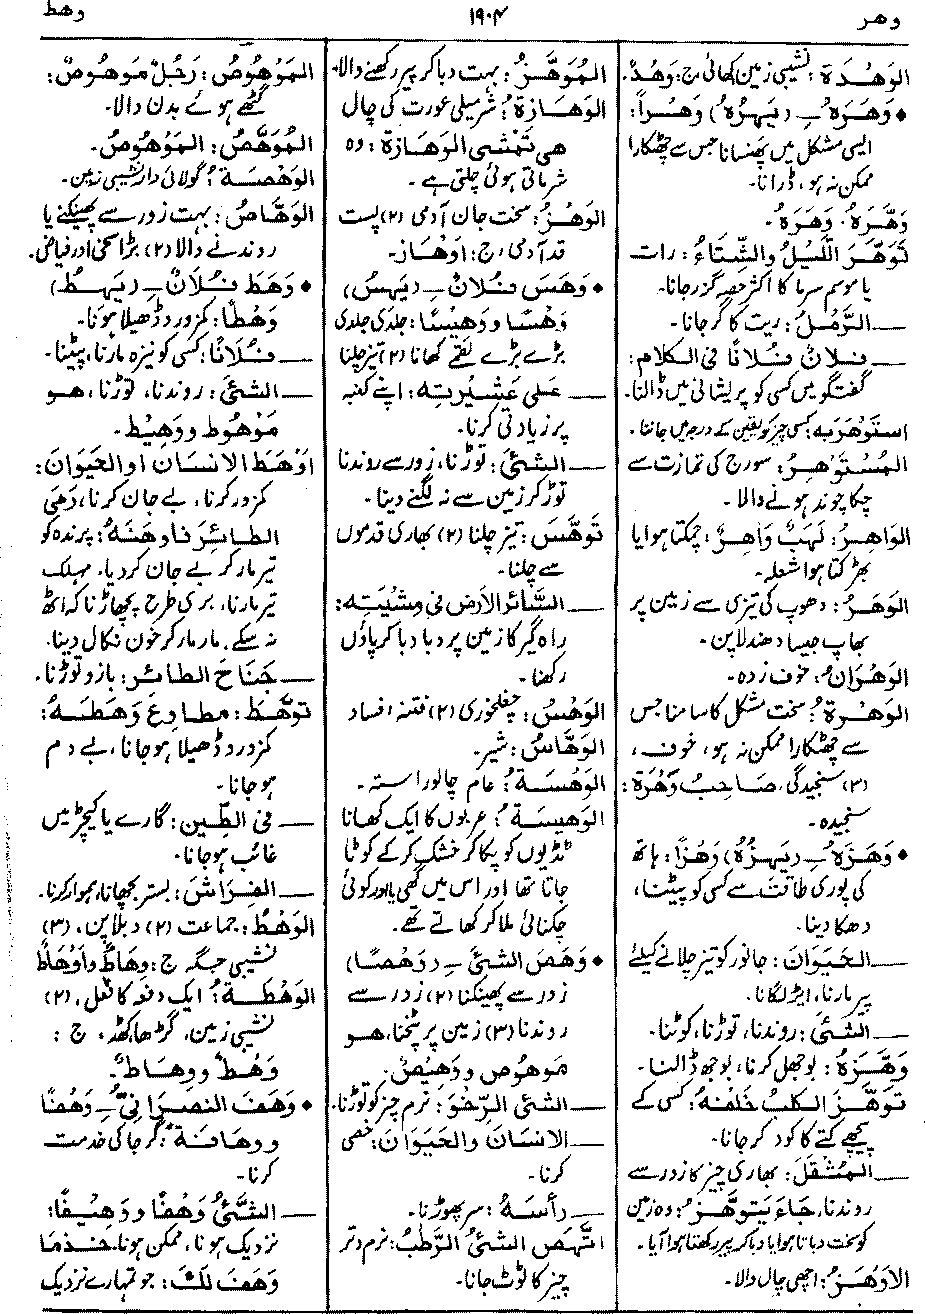 وهر
۱۹۰۴
وهط
الوَهْدَة : نشیبی زمین، کھائی، ج: وَهْدٌ.
• وَهَرَهُ ـِ (یَهِرُهُ) وَهْرًا:
ایسی مشکل میں پھنسانا جس سے چھٹکارا
ممکن نہ ہو، ڈرانا۔
وَهَّرَهُ: وَهَرَهُ۔
تَوَهَّرَ اللَّيلُ والشِّتَاءُ: رات
یا موسم سرما کا اکثر حصہ گزر جانا۔
ــ الرَّمْلُ: ریت کا گر جانا۔
ــ فلانٌ فُلانًا فی الکلام:
گفتگو میں کسی کو پریشانی میں ڈالنا۔
استَوْهَرَ بِهِ: کسی چیز کو یقین کے درجہ میں جاننا۔
المُسْتَوْهِرُ: سورج کی تمازت سے
چکا چوند ہونے والا۔
الوَاهِرُ: لَهَبٌ وَاهِرٌ: چمکتا ہوا یا
بھڑکتا ہوا شعلہ۔
الوَهَرُ: دھوپ کی تیزی سے زمین پر
بھاپ جیسا دھندلا پن۔
الوَهْرَانُ: خوف زدہ۔
الوَهْرَةُ: سخت مشکل کا سامنا جس
سے چھٹکارا ممکن نہ ہو، خوف،
(۳) سنجیدگی، صَاحِبُ وَهْرَة:
سنجیدہ۔
• وَهَزَهُ ـِ (یَهِزُهُ) وَهْزًا: ہاتھ
کی پوری طاقت سے کسی کو پیٹنا،
دھکا دینا۔
ــ الحَيَوَانَ: جانور کو تیز چلانے کیلئے
پیر مارنا، ایڑ لگانا۔
ــ الشَّئَ: روندنا، توڑنا، کوٹنا۔
وَهَّزَهُ: بوجھل کرنا، بوجھ ڈالنا۔
تَوَهَّزَ الكَلبُ خَلفَهُ: کسی کے
پیچھے کتے کا کود کر جانا۔
ــ المُثْقَلُ: بھاری چیز کا زور سے
روندنا، جَاءَ يَتَوَهَّزُ: وہ زمین
کو سخت دباتا ہوا یا دبا کر پیر رکھتا ہوا آیا۔
الأَوْهَزُ: اچھی چال والا۔
المُوَهَّزُ: بہت دبا کر پیر رکھنے والا۔
الوَهَازَةُ: شرمیلی عورت کی چال
هی تَمْشی الوَهَازَة: وہ
شرماتی ہوئی چلتی ہے۔
الوَهْزُ: سخت جان آدمی (۲) پست
قد آدمی، ج: اَوْهَاز۔
• وَهَسَ فلانٌ ـِ (یَهِسُ)
وَهْسًا ووَهِيسًا: جلدی جلدی
بڑے بڑے لقمے کھانا (۲) تیز چلنا
ــ عَلی عَشِیْرَتِهِ: اپنے کنبہ
پر زیادتی کرنا۔
ــ الشَّئَ: توڑنا، زور سے روندنا
توڑ کر زمین سے نہ لگنے دینا۔
تَوَهَّسَ: تیز چلنا (۲) بھاری قدموں
سے چلنا۔
ــ السَّائرُ الأرْضَ فی مِشْیَتِه:
راہ گیر کا زمین پر دبا دبا کر پاؤں
رکھنا۔
الوَهْسُ: چغلخوری (۲) فتنہ فساد
الوَهَّاسُ: شیر۔
الوَهْسَةُ: عام چالو راستہ۔
الوَهِيسَةُ: عربوں کا ایک کھانا
ٹڈیوں کو پکا کر خشک کر کے کوٹا
جاتا تھا اور اس میں گھی یا اور کوئی
چکنائی ملا کر کھاتے تھے۔
• وَهَصَ الشئَ ـِ (وَهْصًا)
زور سے پھینکنا (۲) زور سے
روندنا (۳) زمین پر پٹخنا، هو
مَوْهُوص ووَهِيصٌ۔
ــ الشئ الرِّخْوَ: نرم چیز کو توڑنا۔
ــ الانسَانَ والحَيَوَانَ: خصی
کرنا۔
ــ رأسَهُ: سر پھوڑنا۔
اتَّهَصَ الشئُ الرَّطْبُ: نرم و تر
چیز کا ٹوٹ جانا۔
المَوْهُوصُ: رَجُلٌ مَوْهُوصٌ:
گٹھے ہوئے بدن والا۔
المُوَهَّصُ: المَوْهُوصُ۔
الوَهْصَةُ: گولائی دار نشیبی زمین۔
الوَهَّاصُ: بہت زور سے پھینکنے یا
روندنے والا (۲) بڑا سخی اور فیاض۔
• وَهَطَ فُلانٌ ـِ (یَهِطُ)
وَهْطًا: کمزور و ڈھیلا ہونا۔
ــ فُلانًا: کسی کو نیزہ مارنا، پیٹنا۔
ــ الشئَ: روندنا، توڑنا، هو
مَوْهُوط ووَهِيط۔
اَوْهَطَ الانسَانَ اوالحَيَوَانَ:
کمزور کرنا، بے جان کرنا، رَمَی
الطائرَ فاوهَطَهُ: پرندہ کو
تیر مار کر بے جان کر دیا۔ مہلک
تیر مارنا، بری طرح پچھاڑنا کہ اٹھ
نہ سکے، مار مار کر خون نکال دینا۔
ــ جَنَاحَ الطائر: بازو توڑنا۔
تَوَهَّطَ: مطاوع وَهَطَهُ:
کمزور و ڈھیلا ہو جانا، بے دم
ہو جانا۔
ــ فی الطّين: گارے یا کیچڑ میں
غائب ہو جانا۔
ــ الفِرَاشَ: بستر بچھانا، ہموار کرنا۔
الوَهْطُ: جماعت (۲) دبلا پن، (۳)
نشیبی جگہ ج: وِهَاطٌ وأَوْهَاطٌ
الوَهْطَةُ: ایک دفعہ کا فعل، (۲)
نشیبی زمین، گڑھا، کھڈ، ج:
وَهْطٌ ووِهَاطٌ۔
• وَهَفَ النصرَانِیُّ ـِ وَهْفًا
ووِهَافَةً: گرجا کی خدمت
کرنا۔
ــ الشَّئُ وَهْفًا ووَهِيفًا:
نزدیک ہونا، ممکن ہونا، خُذْ مَا
وَهَفَ لَكَ: جو تمہارے نزدیک